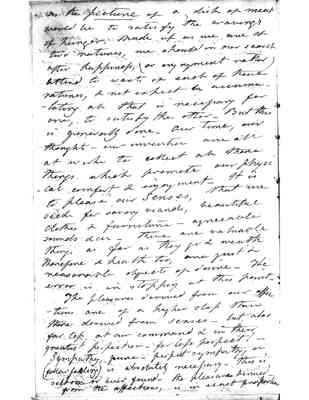 as the picture of a dish of meat
would be to satisfy the cravings
of hunger. Made if as we are of
two natures, we should in our search
after happiness, (or enjoyment rather)
attend to wants of each of these
natures, & not expect by accumu-
lating all that is necessary for
one, to satisfy the other - But this
is generally done. Our time, our
thoughts - our invention are all
at work to collect all those
things which promote our physi-
cal comfort & enjoyment. It is
to please our senses, that we
seek for savory viands, beautiful
clothes & furniture - agreeable
sounds &c. - these are valuable
things as far as they go & wealth
therefore & health too, are just &
reasonable objects of desire. The
error is in stopping at this point.
The pleasures derived from our affec-
tions are of a higher stamp than
those derived from senses - but also
far less at our command & in their
greatest perfection - far less
Sympathy, pure - perfect sympathy, or
(fellow feeling) is absolutely necessary - this is
seldom or ever found - the pleasures derived
from the affections, is in exact proportion